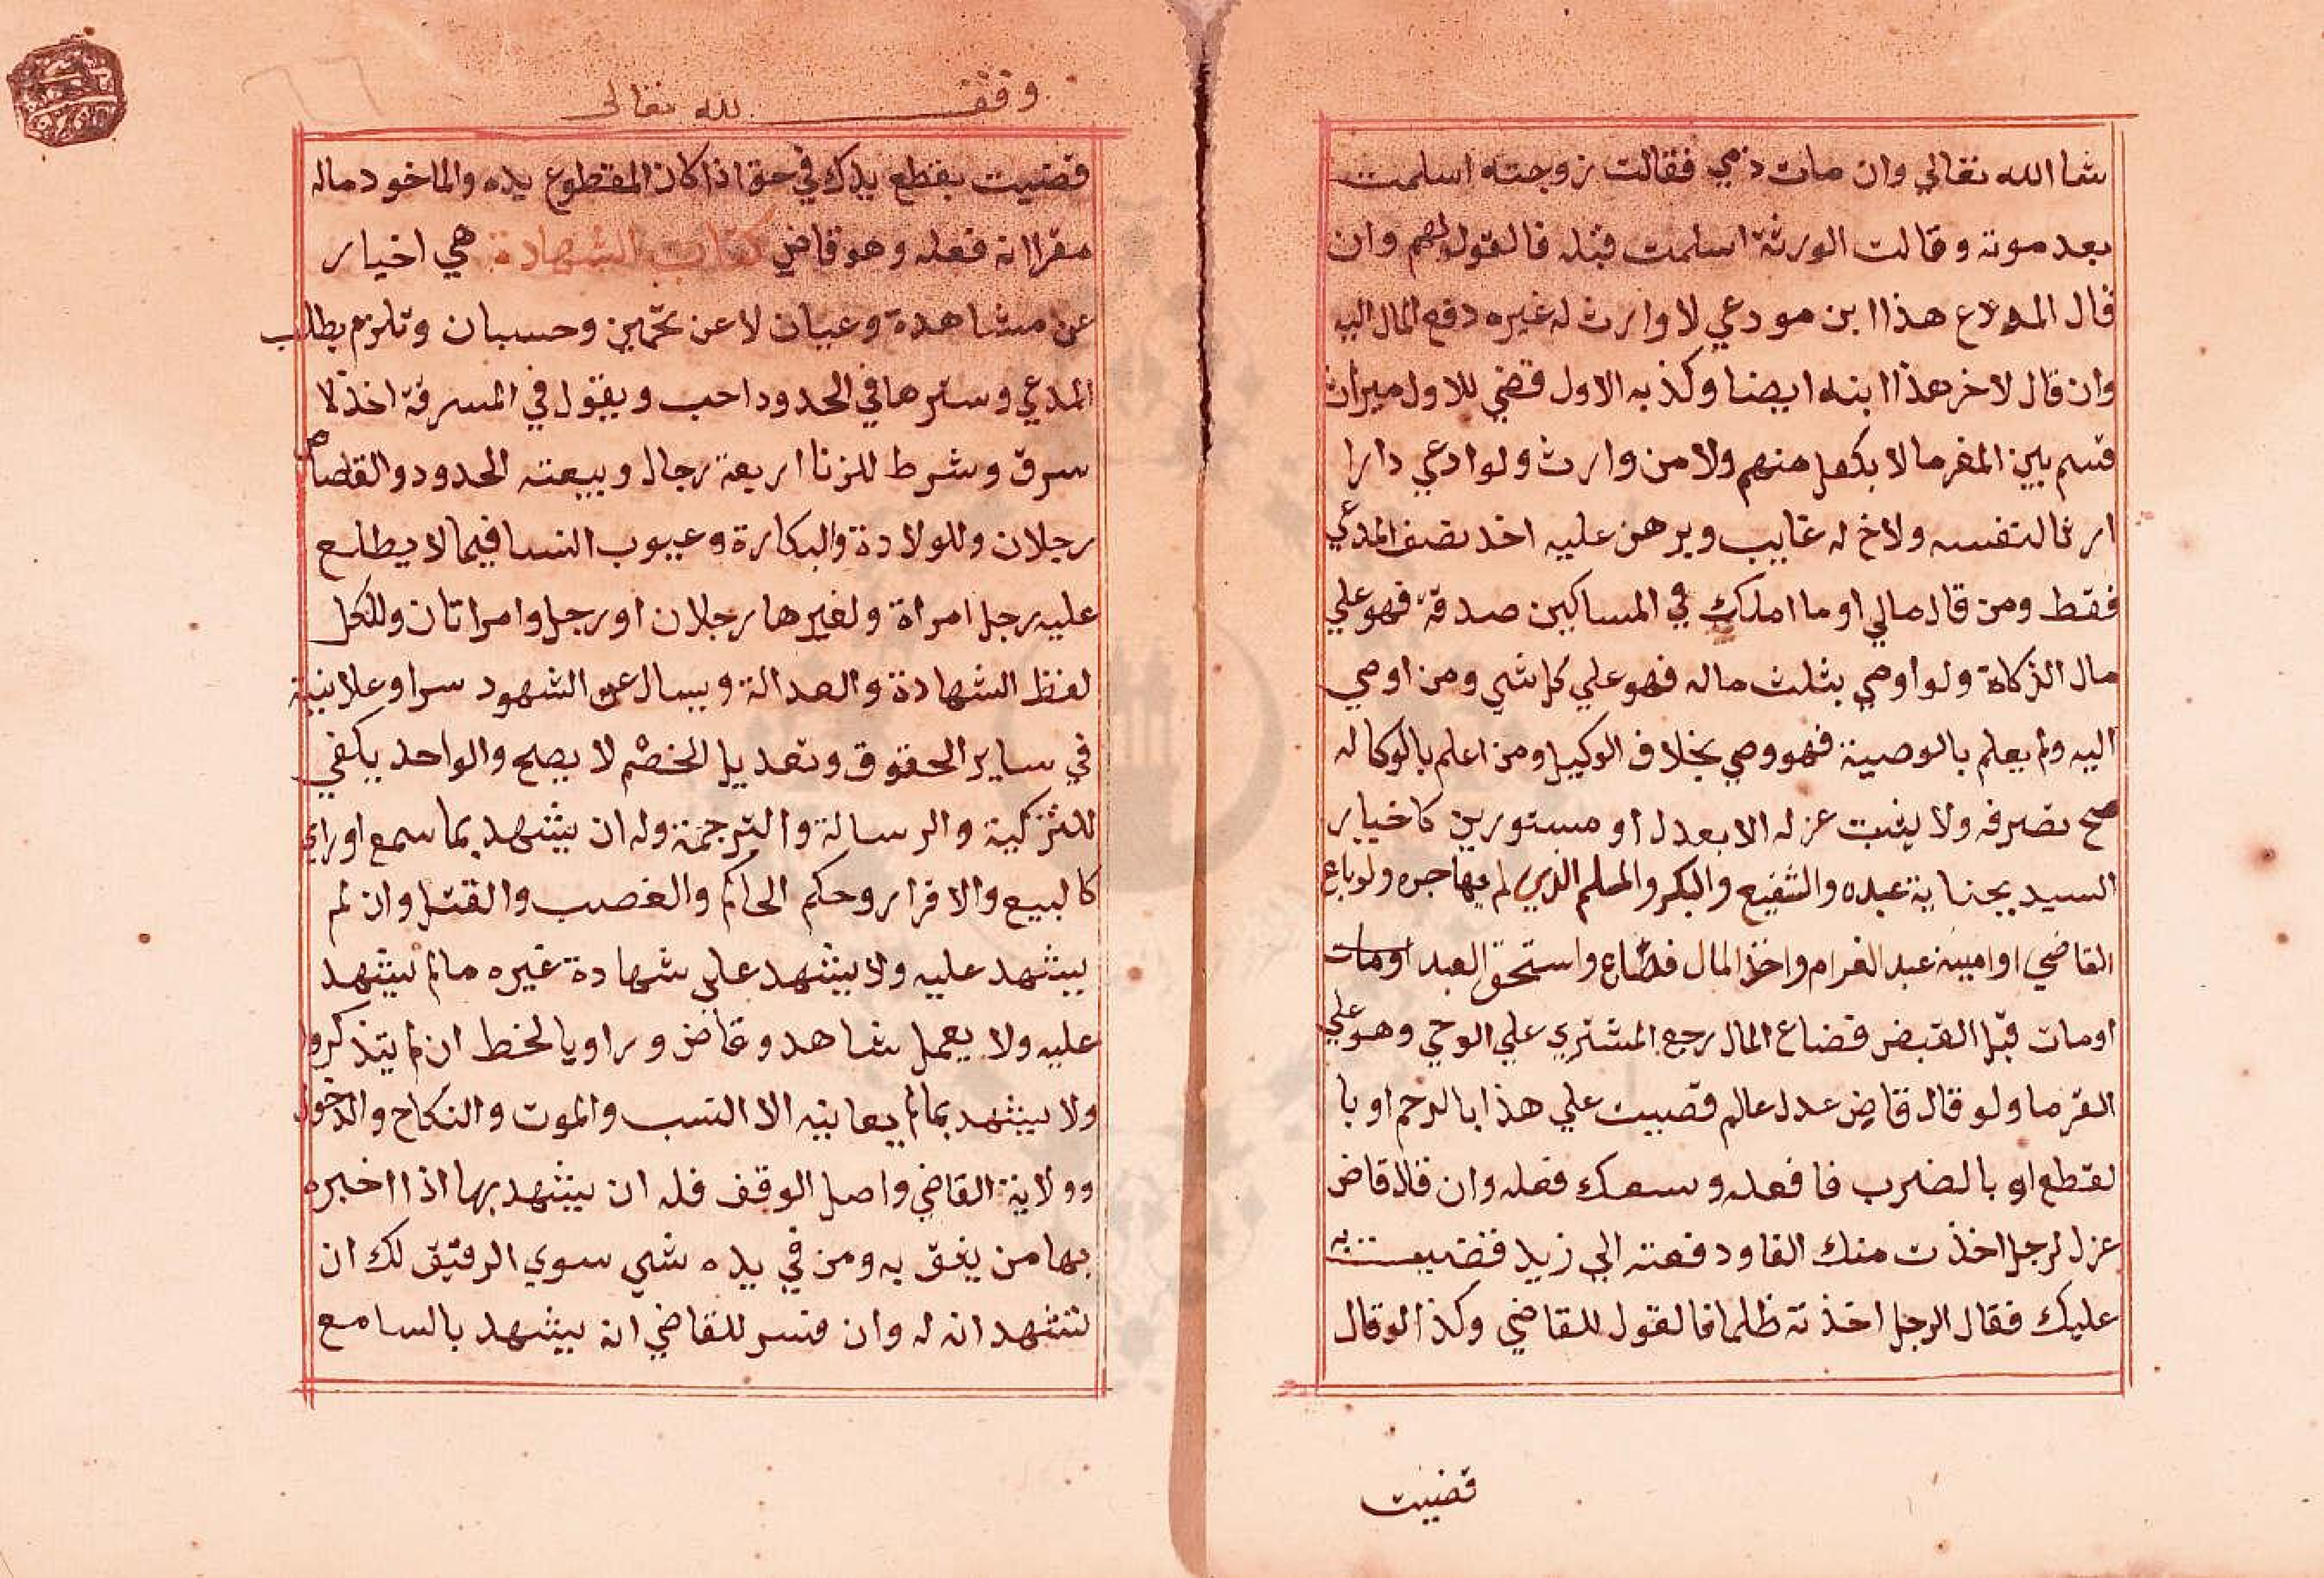 شا الله تعالي وان مات ذمي فقالت زوجته اسلمت
بعد موته وقالت الورثة اسلمت قبله فالقول لهم وان
قال المودع هذا ابن مودعي لا وارث له غيره دفع المال اليه
وان قال لاخر هذا ابنه ايضا وكذبه الاول قضي للاول ميراث
قسم بين الغرما لا يكفل منهم ولا من وارث ولو ادعي دارا
ارثا لنفسه ولاخ له غايب وبرهن عليه اخد نصف المدعي
فقط ومن قال مالي او ما املك في المساكين صدقة فهو علي
مال الزكاة ولو اوصي بثلث ماله فهو علي كل شي ومن اوصي
اليه ولم يعلم بالوصية فهو وصي بخلاف الوكيل ومن اعلم بالوكاله
صح تصرفه ولا يثبت عزله الا بعدل او مستورين كاخبار
السيد بجناية عبده والشفيع والبكر والمسلم الذي لم يهاجر ولو باع
القاضي او امينه عبد الغرام واخذ المال فضاع واستحق العبد او مات
او مات قبل القبض فضاع المال رجع المشتري علي الوصي وهو علي
الغرما ولو قال قاض عدل عالم قضيت علي هذا بالرجم او با
لقطع او بالضرب فافعله وسعك فعله وان قال قاض
عزل لرجل اخذت منك الفا ودفعته الي زيد قضيت به
عليك فقال الرجل اخذته ظلما فالقول للقاضي وكذا لو قال
قضيت
وقف لله تعالى
قضيت بقطع يدك في حق اذا كان المقطوع يده والماخود ماله
مقرا انه فعله وهو قاض كتاب الشهادة هي اخبار
عن مشاهدة وعيان لا عن تخمين وحسبان وتلزم بطلب
المدعي وسترها في الحدود احب ويقول في السرقة اخذ لا
سرق وشرط للزنا اربعة رجال وبيعته الحدود والقصاص
رجلان وللولادة والبكارة وعيوب النسا فيما لا يطلع
عليه رجل امراة ولغيرها رجلان او رجل وامراتان وللكل
لفظ الشهادة والعدالة ويسال عن الشهود سرا وعلانية
في ساير الحقوق وتعديل الخصم لا يصح والواحد يكفي
للتزكية والرسالة والترجمة وله ان يشهد بما سمع او راي
كالبيع والاقرار وحكم الحاكم والغصب والقتل وان لم
يشهد عليه ولا يشهد علي شهادة غيره ما لم يشهد
عليه ولا يعمل شاهد وقاض وراو بالخط ان لم يتذكروا
ولا يشهد بما لم يعاينه الا النسب والموت والنكاح والدخول
وولاية القاضي واصل الوقف فله ان يشهد بها اذا اخبره
بها من يثق به ومن في يده شي سوي الرقيق لك ان
تشهد انه له وان فسر للقاضي انه يشهد بالسامع